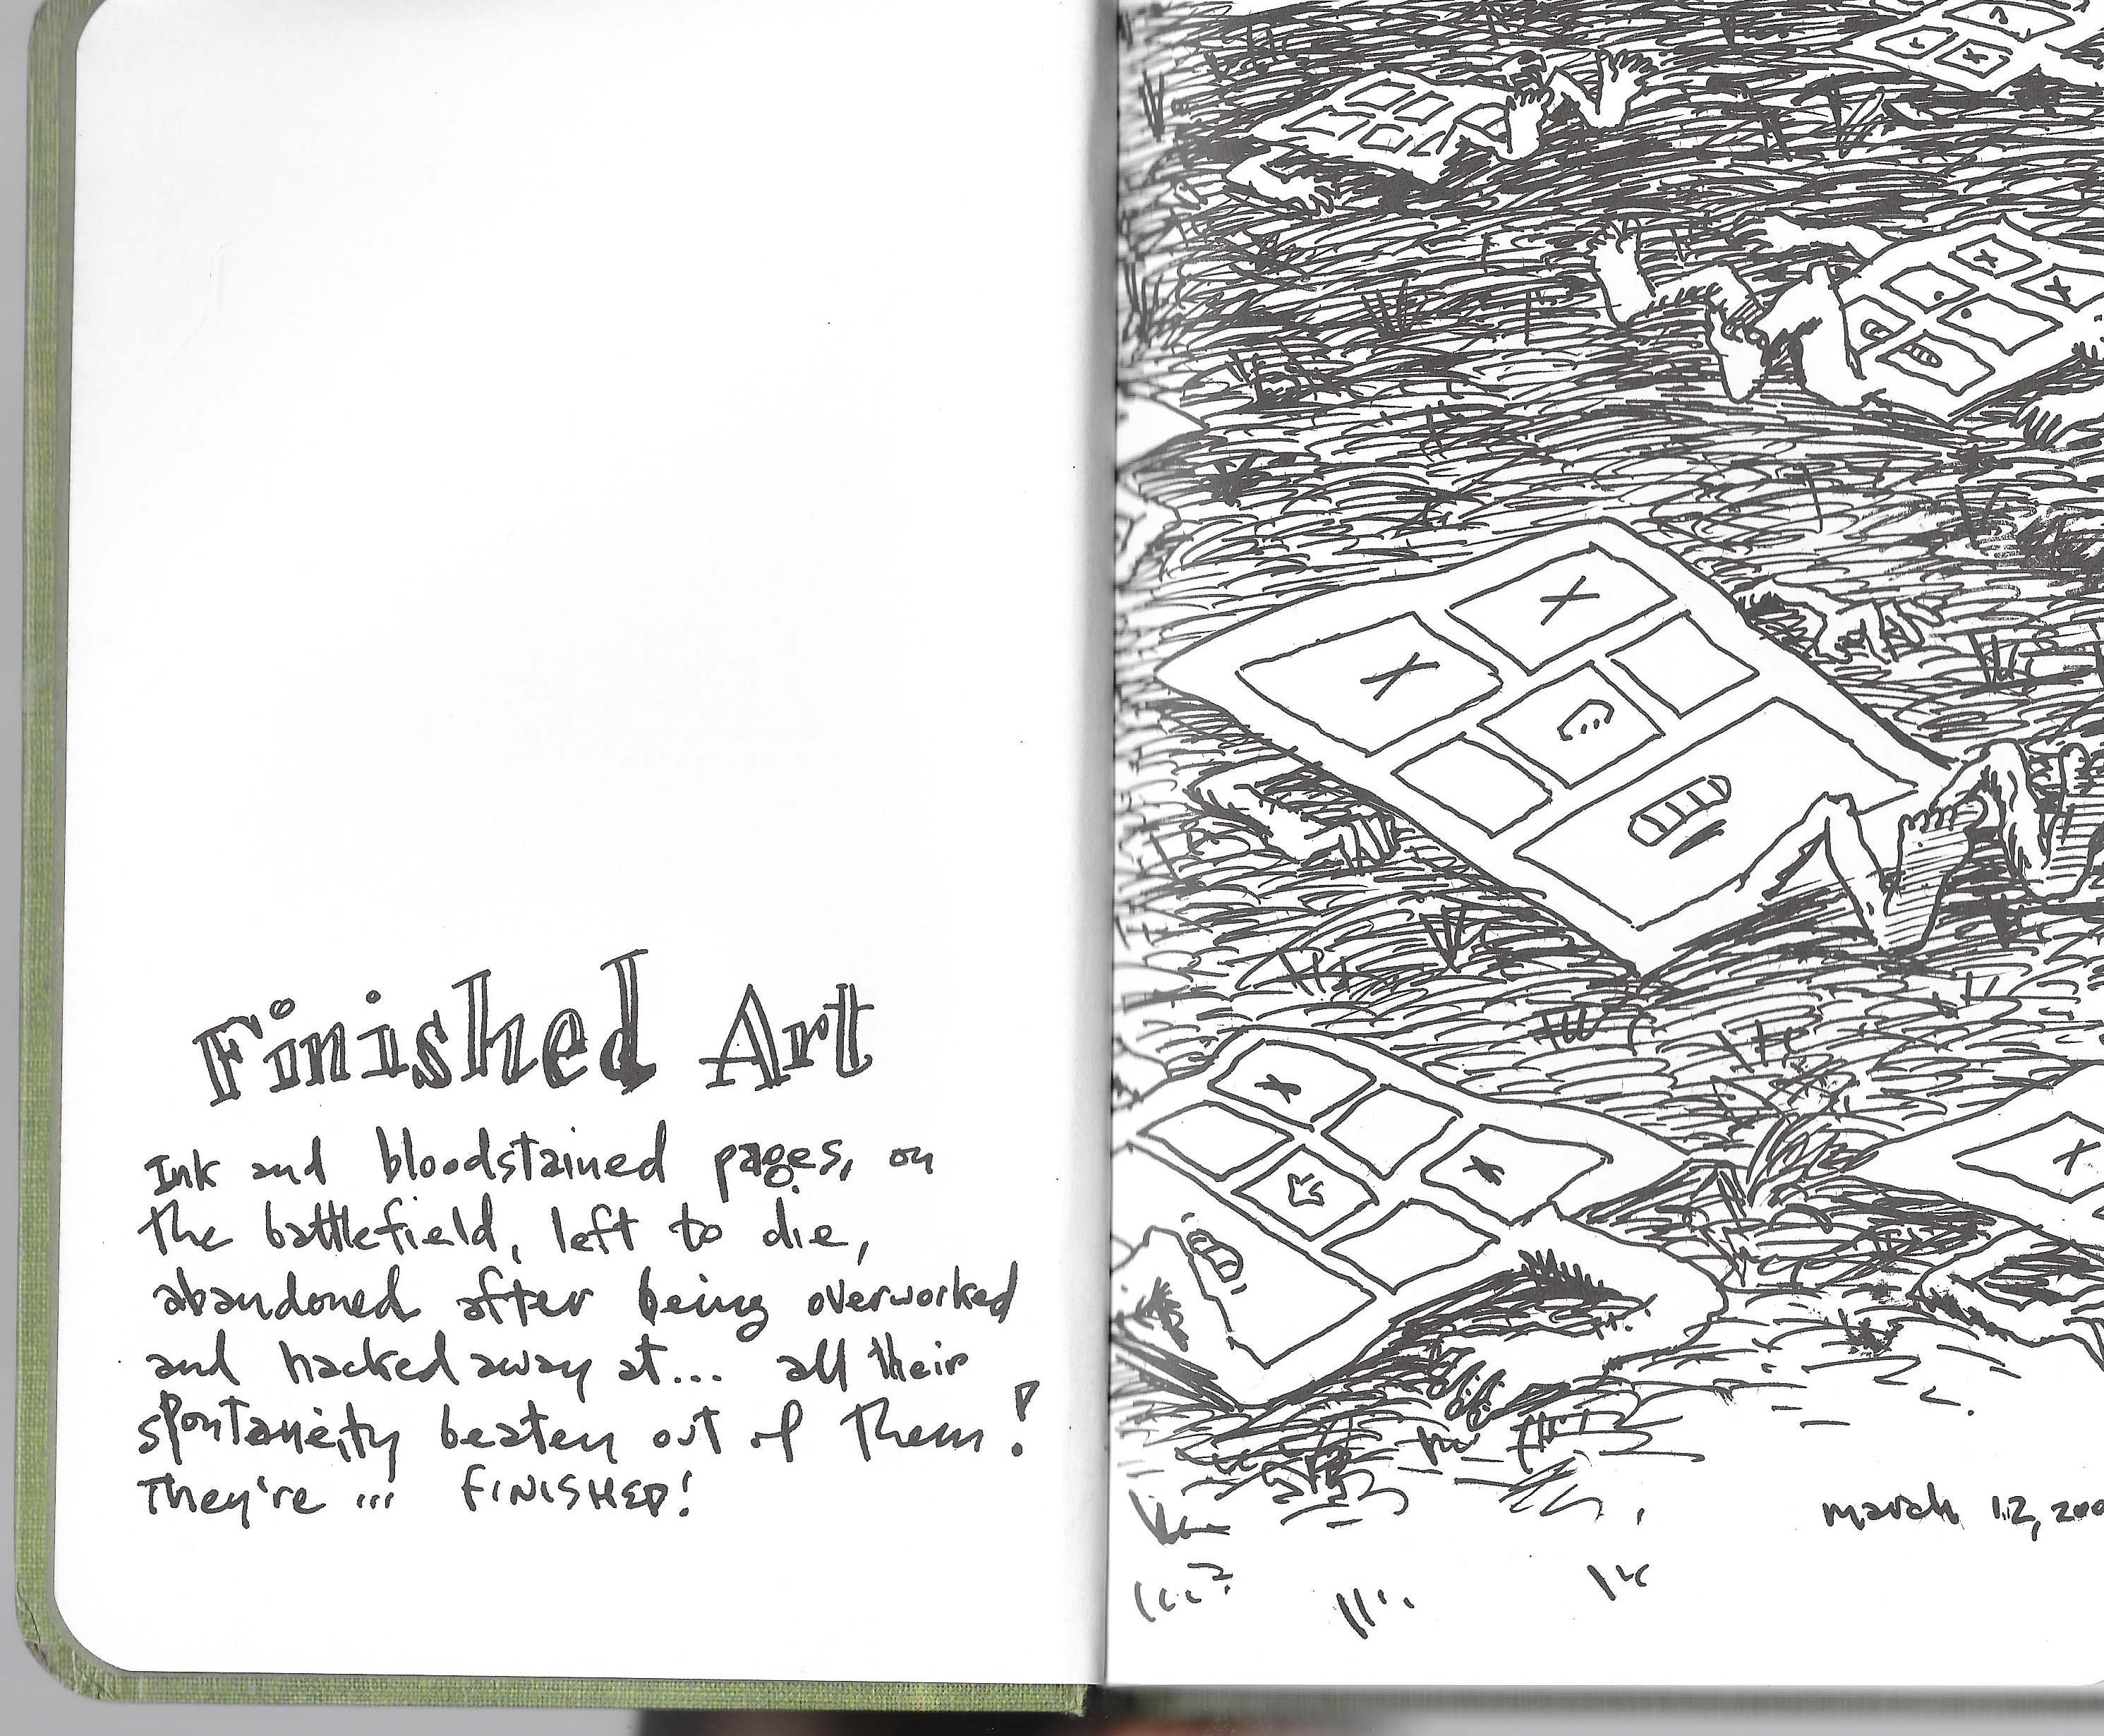 Finished Art
Ink and bloodstained pages, on
the battlefield, left to die,
abandoned after being overworked
and hacked away at... all their
spontaneity beaten out of them!
They're ... FINISHED!
march 12, 200